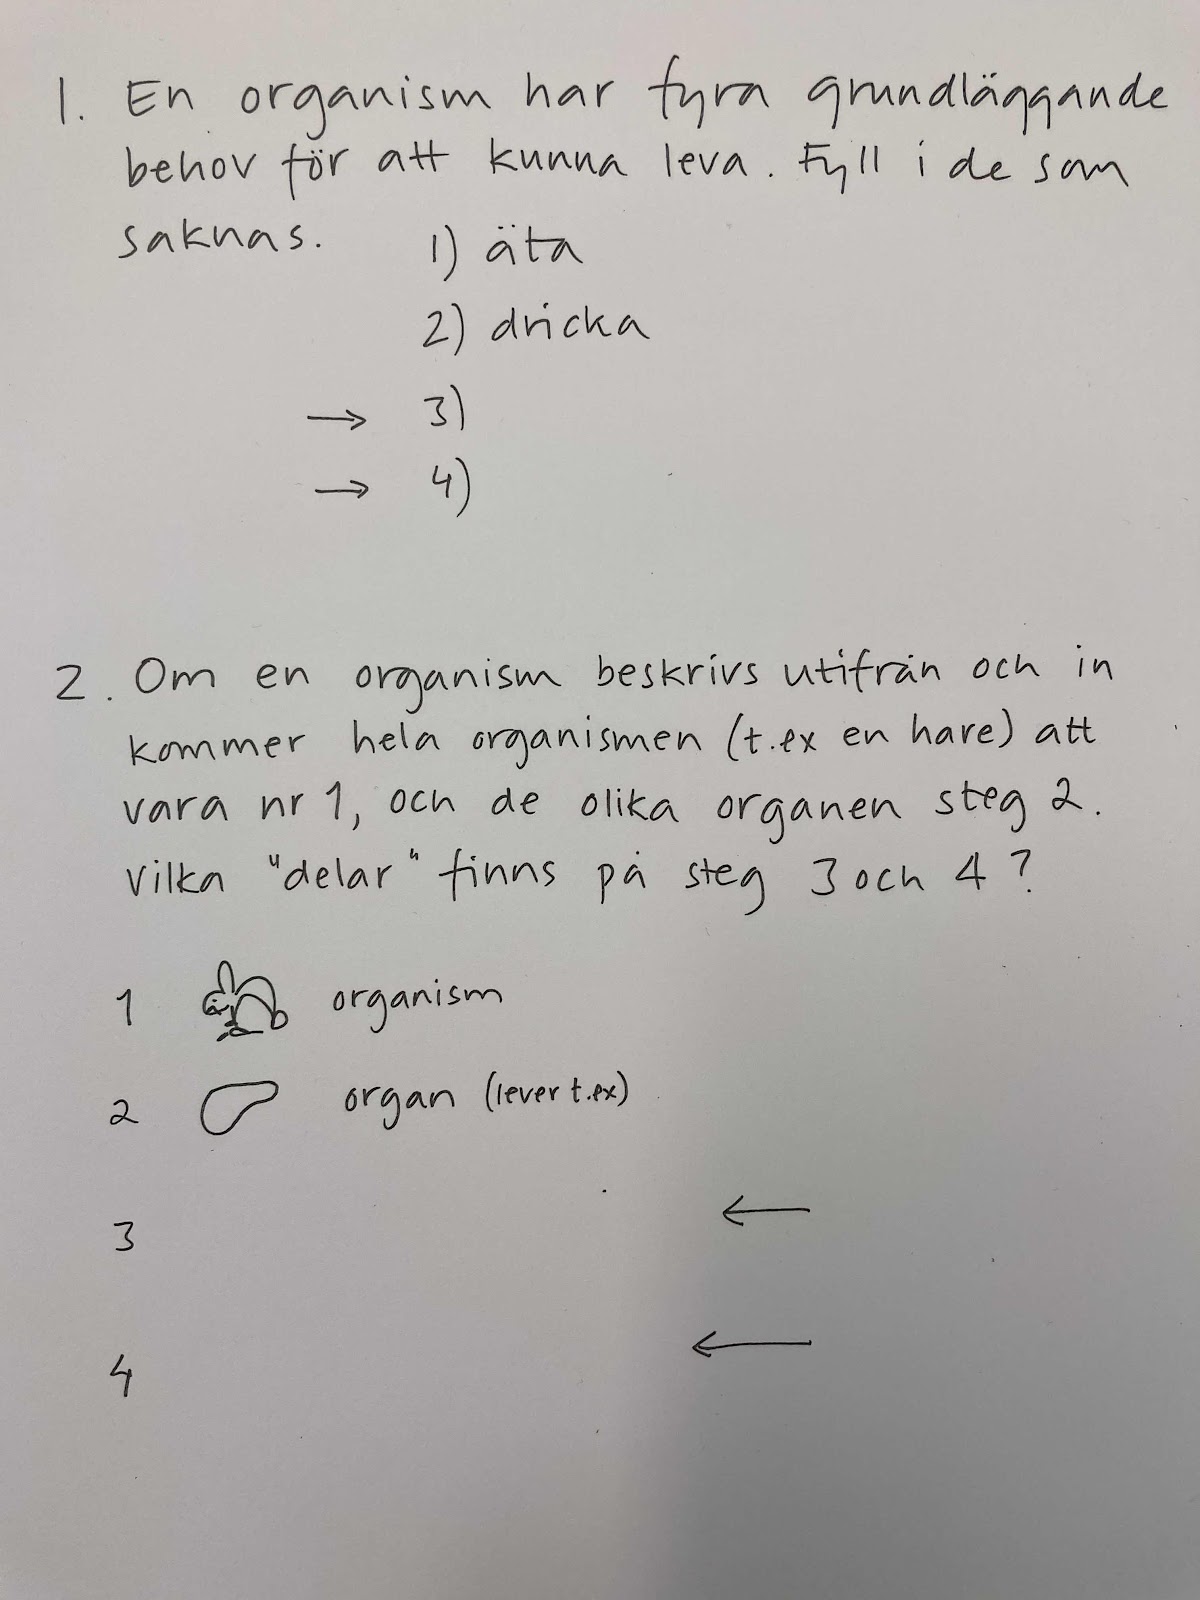 1. En organism har fyra grundläggande
behov för att kunna leva. Fyll i de som
saknas.
1) äta
2) dricka
→ 3)
→ 4)
2. Om en organism beskrivs utifrån och in
kommer hela organismen (t.ex en hare) att
vara nr 1, och de olika organen steg 2.
Vilka "delar" finns på steg 3 och 4?
1 organism
2 organ (lever t.ex)
3 ←
4 ←